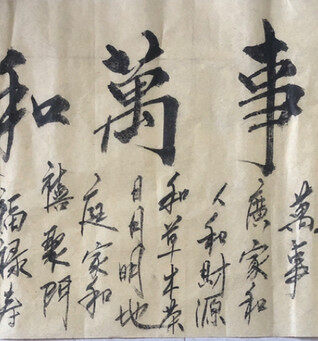 和萬事
福禄寿
禧聚門
庭家和
日月明地
和草木榮
人和財源
廣家和
萬事